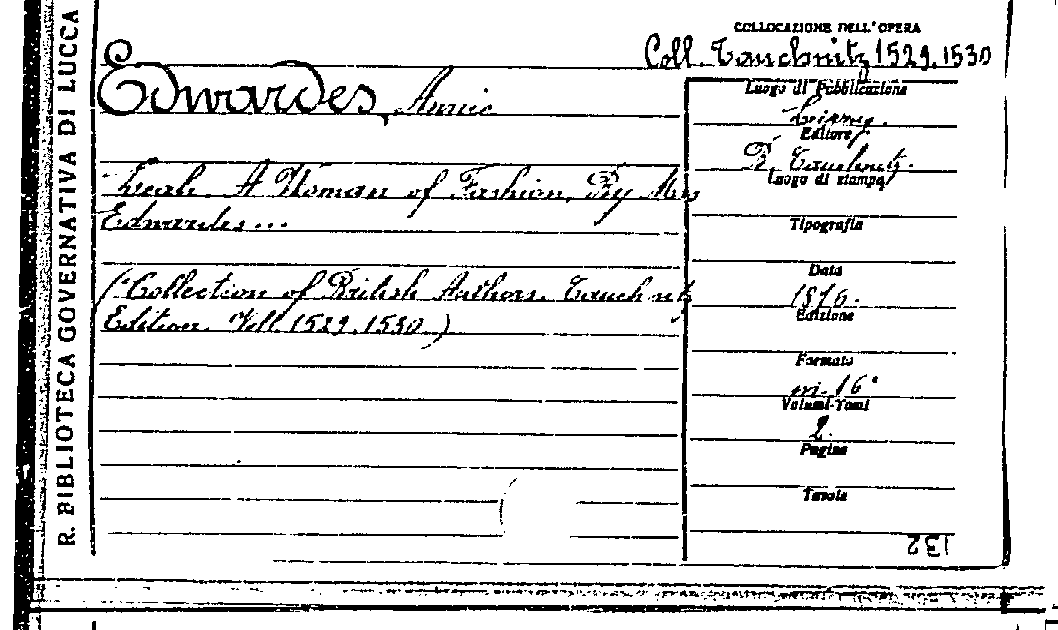 R. BIBLIOTECA GOVERNATIVA DI LUCCA
COLLOCAZIONE DELL'OPERA
Coll. Tauchnitz 1529.1530
Edwardes, Annie
Leah. A Woman of Fashion. By Mrs
Edwardes...
("Collection of British Authors. Tauchnitz
Edition. Voll. 1529.1530.)
Luogo di Pubblicazione
Lipsia.
Editore
B. Tauchnitz.
Luogo di stampa
Tipografia
Data
1876.
Edizione
Formato
in-16°
Volumi-Tomi
2.
Pagine
Tavole
132